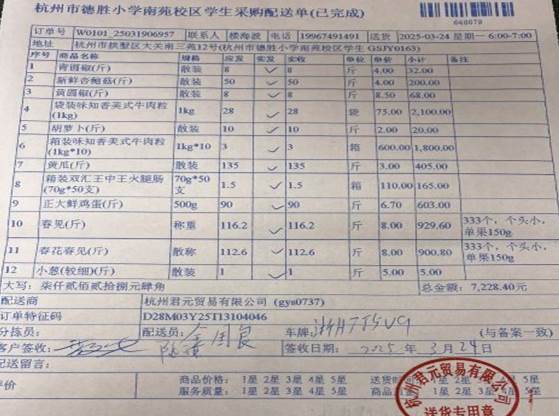 杭州市德胜小学南苑校区学生采购配送单(已完成)
648079
订单号 W0101_25031906957 联系人 楼海波 电话 19967491491 送货 2025-03-24 星期一 6:00-7:00
地址 杭州市拱墅区大关南三苑12号(杭州市德胜小学南苑校区学生 GSJY0163)
序号 商品名称 规格 应发 实发 实收 单位 单价 小计 备注
1 青圆椒(斤) 散装 8 8 斤 4.00 32.00
2 新鲜杏鲍菇(斤) 散装 50 50 斤 4.00 200.00
3 黄圆椒(斤) 散装 8 8 斤 8.50 68.00
4 袋装味知香美式牛肉粒(1kg) 1kg 28 28 袋 75.00 2,100.00
5 胡萝卜(斤) 散装 10 10 斤 2.00 20.00
6 箱装味知香美式牛肉粒(1kg*10) 1kg*10 3 3 箱 600.00 1,800.00
7 黄瓜(斤) 散装 135 135 斤 3.00 405.00
8 箱装双汇王中王火腿肠(70g*50支) 70g*50支 1.5 1.5 箱 110.00 165.00
9 正大鲜鸡蛋(斤) 500g 90 90 斤 6.70 603.00
10 春见(斤) 称重 116.2 116.2 斤 8.00 929.60 333个，个头小，单果150g
11 春花春见(斤) 散称 112.6 112.6 斤 8.00 900.80 333个，个头小，单果150g
12 小葱(较细)(斤) 散装 1 1 斤 5.00 5.00
大写：柒仟贰佰贰拾捌元肆角 总金额：7,228.40
配送商 杭州君元贸易有限公司 (gys0737)
订单特征码 D28M03Y25T13104046
分拣员： 配送员： 车牌： (与备案一致)
客户签收： 签收日期：2025年3月24日
配送留言：
评价 商品价格：1星 2星 3星 4星 5星
服务质量：1星 2星 3星 4星 5星
杭州君元贸易有限公司
送货专用章